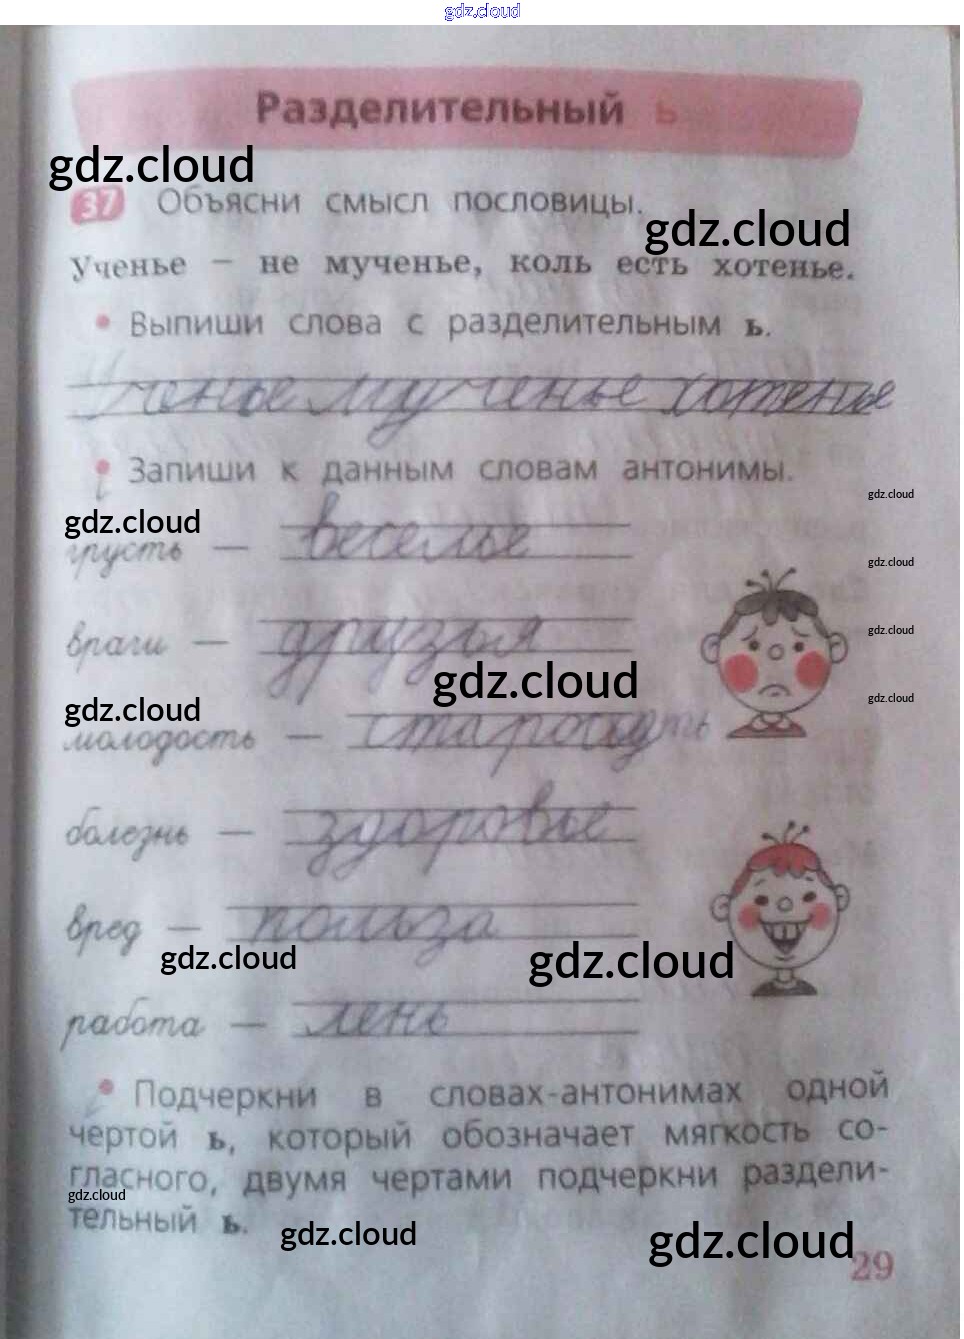 gdz.cloud
Разделительный ь
gdz.cloud
37 Объясни смысл пословицы.
gdz.cloud
Ученье – не мученье, коль есть хотенье.
• Выпиши слова с разделительным ь.
Ученье мученье хотенье
• Запиши к данным словам антонимы.
gdz.cloud
gdz.cloud
грусть — веселье
gdz.cloud
gdz.cloud
враги — друзья
gdz.cloud
gdz.cloud
gdz.cloud
молодость —
болезнь — здоровье
вред — польза
gdz.cloud
gdz.cloud
работа — лень
• Подчеркни в словах-антонимах одной
чертой ь, который обозначает мягкость со-
гласного, двумя чертами подчеркни раздели-
gdz.cloud
тельный ь.
gdz.cloud
gdz.cloud
29